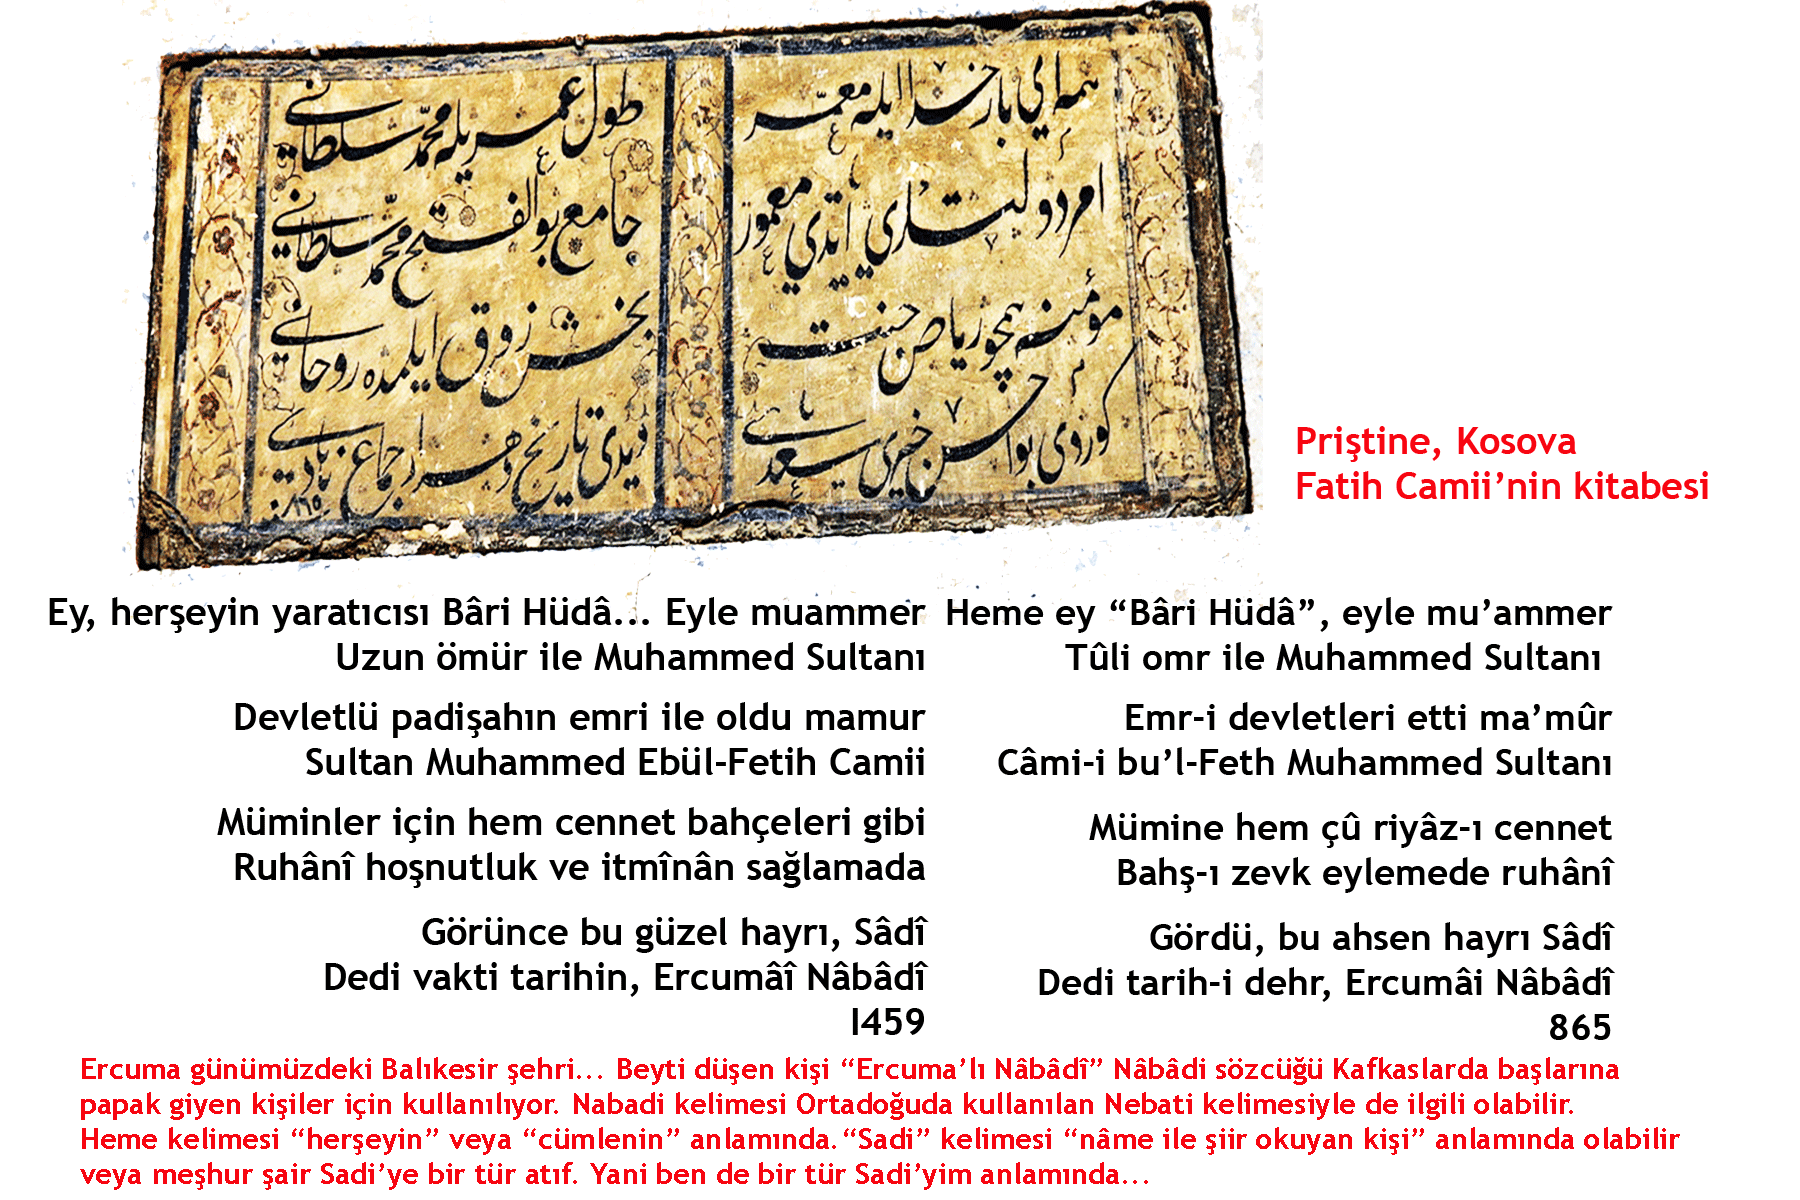 همه ای بار خدا ایله معمر
طول عمریله محمد سلطانی
امر دولتلری ایتدی معمور
جامع بو الفتح محمد سلطانی
مؤمنه همچو ریاض جنت
بخش ذوق ایلمده روحانی
کوردی بو احسن خیری سعدی
دیدی تاریخ
٨٦٥
Priştine, Kosova
Fatih Camii’nin kitabesi
Ey, herşeyin yaratıcısı Bâri Hüdâ... Eyle muammer
Uzun ömür ile Muhammed Sultanı
Devletlü padişahın emri ile oldu mamur
Sultan Muhammed Ebül-Fetih Camii
Müminler için hem cennet bahçeleri gibi
Ruhânî hoşnutluk ve itmînân sağlamada
Görünce bu güzel hayrı, Sâdî
Dedi vakti tarihin, Ercumâî Nâbâdî
I459
Heme ey “Bâri Hüdâ”, eyle mu’ammer
Tûli omr ile Muhammed Sultanı
Emr-i devletleri etti ma’mûr
Câmi-i bu’l-Feth Muhammed Sultanı
Mümine hem çû riyâz-ı cennet
Bahş-ı zevk eylemede ruhânî
Gördü, bu ahsen hayrı Sâdî
Dedi tarih-i dehr, Ercumâi Nâbâdî
865
Ercuma günümüzdeki Balıkesir şehri... Beyti düşen kişi “Ercuma’lı Nâbâdî” Nâbâdi sözcüğü Kafkaslarda başlarına
papak giyen kişiler için kullanılıyor. Nabadi kelimesi Ortadoğuda kullanılan Nebati kelimesiyle de ilgili olabilir.
Heme kelimesi “herşeyin” veya “cümlenin” anlamında.“Sadi” kelimesi “nâme ile şiir okuyan kişi” anlamında olabilir
veya meşhur şair Sadi’ye bir tür atıf. Yani ben de bir tür Sadi’yim anlamında...